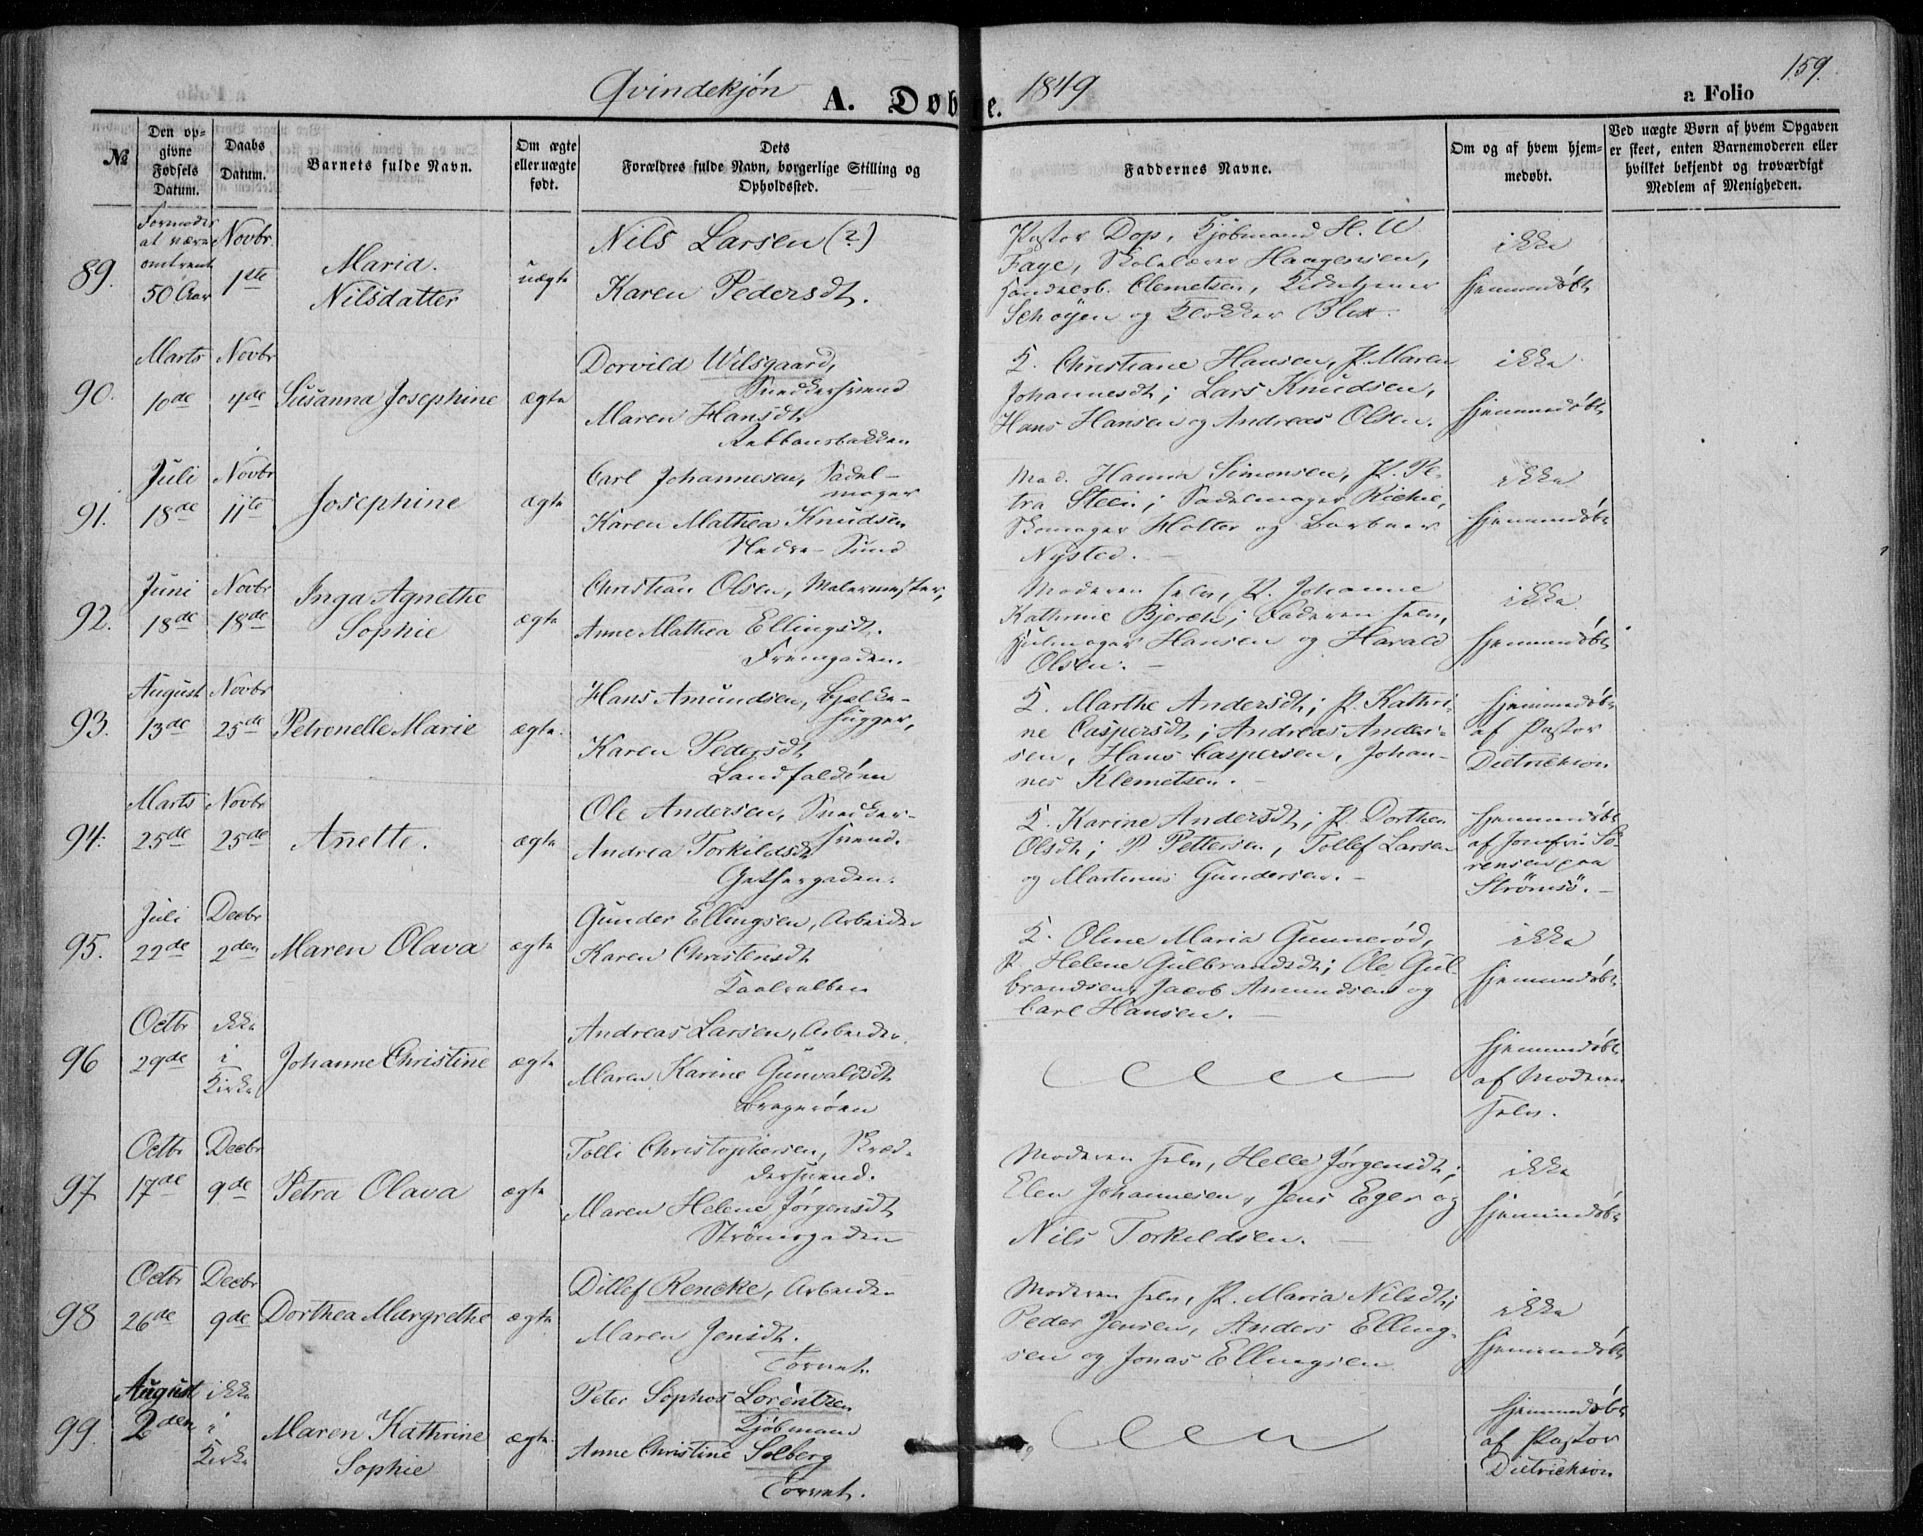 159.
Qvindekjön A. Døbte. 1849 a Folio
№
Den op-
givne
Fødsels
Datum.
Daabs
Datum.
Barnets fulde Navn.
Om ægte
eller uægte
født.
Dets
Forældres fulde Navn, borgerlige Stilling og
Opholdssted.
Faddernes Navne.
Om og af hvem hjem-
medøbt.
Ved uægte Børn af hvem Opgaven
er skeet, enten Barnemoderen eller
hvilket bekjendt og troværdigt
Medlem af Menigheden.
89.
Formodes
at være
omtrent
50 Aar
Novbr
1ste
Maria
Nilsdatter
uægte
Nils Larsen (?)
Karen Pedersdt.
Pastor Dop, Kjöbmand H. W
Faye, Skolelærer Haagensen,
Clemetsen, Kirketjener
Schøyen og Klokker Blix.
ikke
hjemmedöbt
90.
Marts
10de
Novbr
4de
Susanna Josephine
ægte
Dorvild Wilsgaard,
Snedkersvend
Maren Hansdt.
Rebbansbakken
K. Christiane Hansen, P. Maren
Johannesdt; Lars Knudsen,
Hans Hansen og Andreas Olsen.
ikke
hjemmedöbt
91.
Juli
18de
Novbr
11te
Josephine
ægte
Carl Johannesen, Sadel-
mager
Karen Mathea Knudsen
Nedre-Sund
Mad. Hanna Simonsen, P. Pe-
tra Steen; Sadelmager
Skomager Holter og Barbeer
Nysted.
ikke
hjemmedöbt
92.
Juni
18de
Novbr
18de
Inga Agnethe
Sophie
ægte
Christian Olsen, Malermester,
Anne Mathea Ellingsdt.
Fremgaden.
Moderen selv, P. Johanne
Kathrine Bjerch; Faderen selv,
Hjulmager Hansen og Harald
Olsen.
ikke
hjemmedöbt
93.
August
13de
Novbr
25de
Petronelle Marie
ægte.
Hans Amundsen, Bjelke-
hugger,
Karen Pedersdt
Landfaldöen
K. Marthe Andersdt; P. Kathri-
ne Caspersdt; Andreas Ander-
sen, Hans Caspersen, Johan-
nes Klemetsen.
hjemmedöbt
af Pastor
Dietrichson
94.
Marts
25de
Novbr
25de
Anette.
ægte
Ole Andersen, Snedker-
svend.
Andrea Torkildsdt
Gethergaden.
K. Karine Andersdt; P. Dorthea
Olsdt; P Pettersen, Tollef Larsen
og Martinus Gundersen.
hjemmedöbt
af Jomfru Sö-
rensen paa
Strömsö.
95.
Juli
22de
Decbr
2den
Maren Olava
ægte
Gunder Ellingsen, Arbeider
Karen Christensdt
K. Oline Maria Gunneröd,
P. Helene Gulbrandsdt; Ole Gul-
brandsen, Jacob Amundsen og
Carl Hansen.
ikke
hjemmedöbt
96
Octbr
29de
ikke
i
Kirke
Johanne Christine
ægte
Andreas Larsen, Arbeider.
Maren Karine Gunvaldsdt
Bragerøen
hjemmedöbt
af Moderen
selv.
97
Octbr
17de
Decbr
9de
Petra Olava
ægte
Tolli Christophersen, Skræd-
dersvend.
Maren Helene Jörgensdt
Strömsgaden
Moderen selv, Helle Jörgensdt;
Elen Johannesen, Jens Eger og
Nils Torkildsen.
ikke
hjemmedöbt
98
Octbr
26de
Decbr
9de
Dorthea Margrethe
ægte
Ditlef Rencke, Arbeider
Maren Jensdt.
Torvet.
Moderen selv, P. Maria Nilsdt;
Peder Jensen, Anders Elling-
sen og Jonas Ellingsen
ikke
hjemmedöbt
99.
August
2den
ikke
i
Kirke
Maren Kathrine
Sophie
ægte
Peter Sophos Lorentzen
Kjöbmand
Anne Christine Solberg
Torvet.
hjemmedöbt
af Pastor
Dietrichson